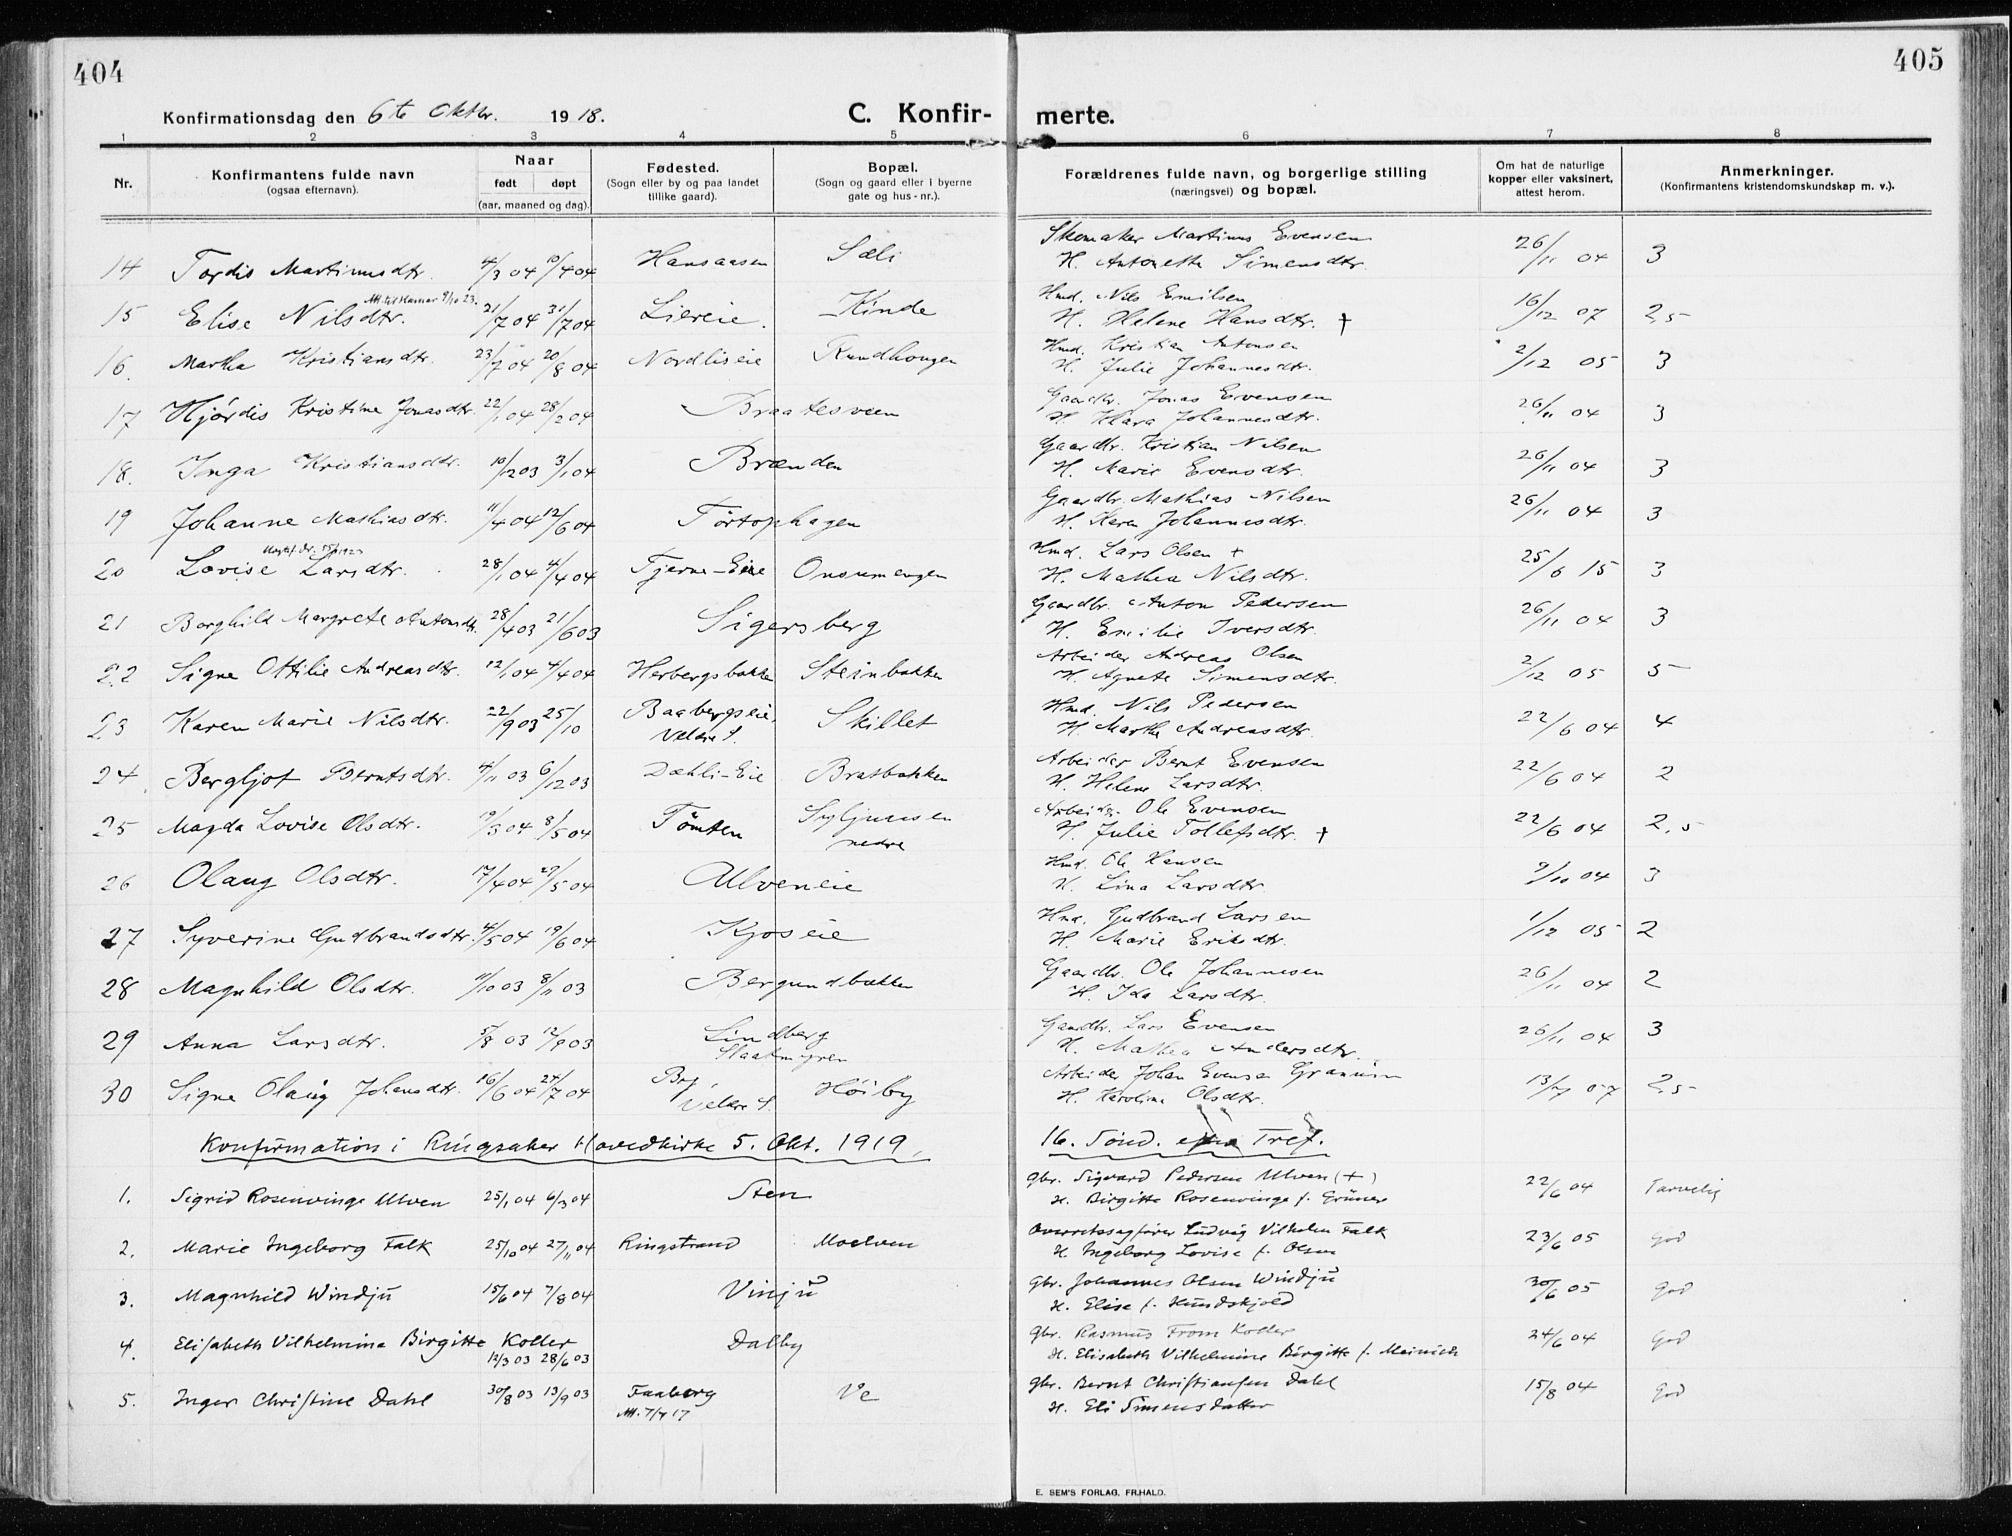 404
405
Konfirmationsdag den 6te Oktbr. 1918.
C. Konfirmerte.
1 2 3 4 5 6 7 8
Nr.
Konfirmantens fulde navn (ogsaa efternavn).
Naar født døpt (aar, maaned og dag).
Fødested. (Sogn eller by og paa landet tillike gaard).
Bopæl. (Sogn og gaard eller i byerne gate og hus-nr.).
Forældrenes fulde navn, og borgerlige stilling (næringsvei) og bopæl.
Om hat de naturlige kopper eller vaksinert, attest herom.
Anmerkninger. (Konfirmantens kristendomskundskap m. v.).
14 Tordis Martinusdtr. 4/3 04 10/4 04 Hansaasen Sæli Skomaker Martinus Evensen 26/11 04 3
H. Antonette Simensdtr.
Att. til Hamar 9/10 23.
15 Elise Nilsdtr. 21/7 04 31/7 04 Liereie. Kinde Hmd. Nils Emilsen 16/12 07 2,5
H. Helene Hansdtr. †
16. Martha Kristiansdtr. 23/7 04 20/8 04 Nordliseie Rundhougen Hmd. Kristian Antonsen 2/12 05 3
H. Julie Johannesdtr.
17 Hjørdis Kristine Jonasdtr. 22/1 04 28/2 04 Braatesveen Gaardbr. Jonas Evensen 26/11 04 3
H. Klara Johannesdtr.
18. Inga Kristiansdtr. 10/12 03 3/1 04 Brænden Gaardbr. Kristian Nilsen 26/11 04 3
H. Marie Evensdtr.
19 Johanne Mathiasdtr. 11/4 04 12/6 04 Törtophagen Gaardbr. Mathias Nilsen 26/11 04 3
H. Karen Johannesdtr.
20 Lovise Larsdtr. 28/1 04 4/4 04 Tjerne-Eie Onsumengen Hmd. Lars Olsen + 25/6 15 3
H. Mathea Nilsdtr.
21 Borghild Margrete Antonsdtr. 28/4 03 21/6 03 Sigersberg Gaardbr. Anton Pedersen 26/11 04 3
H. Emilie Iversdtr.
22 Signe Ottilie Andreasdtr. 12/1 04 4/4 04 Herbergsbakken Steinbakken Arbeider Andreas Olsen 2/12 05 5
H. Agnete Simensdtr.
23 Karen Marie Nilsdtr. 22/9 03 25/10 Baabergseie, Skillet Hmd. Nils Pedersen 22/6 04 4
Veldre S. H. Marthe Andreasdtr.
24 Bergljot Berntsdtr. 4/11 03 6/12 03 Dæhli-Eie Bratbakken Arbeider Bernt Evensen 22/6 04 2
H. Helene Larsdtr.
25 Magda Lovise Olsdtr. 19/3 04 8/5 04 Tömten Syljuaasen Arbeider Ole Evensen 22/6 04 2,5
nedre H. Julie Tollefsdtr. †
26 Olaug Olsdtr. 17/4 04 29/5 04 Ulveneie Hmd. Ole Hansen 9/10 04 3
H. Lina Larsdtr.
27 Syverine Gudbrandsdtr. 4/5 04 19/6 04 Kjoseie Hmd. Gudbrand Larsen 1/12 05 2
H. Marie Eriksdtr.
28 Magnhild Olsdtr. 11/10 03 8/11 03 Bergundbakken Gaardbr. Ole Johannesen 26/11 04 2
H. Ida Larsdtr.
29 Anna Larsdtr. 5/8 03 12/9 03 Lindberg Gaardbr. Lars Evensen 26/11 04 3
Slaatmyren H. Mathea Andersdtr.
30 Signe Olaug Johansdtr. 16/6 04 24/7 04 Høiby Arbeider Johan Evensen 13/7 07 2,5
Veldre S. H. Karoline Olsdtr.
Konfirmation i Ringsaker Hovedkirke 5. Okt. 1919. 16. Sönd. Tref.
1. Sigrid Rosenvinge Ulven 25/1 04 6/3 04 Sten Gbr. Sigvard Pedersen Ulven (+) 22/6 04 Tarvelig
H. Birgitte Rosenvinge f. Grüner
2. Marie Ingeborg Falk 25/10 04 27/11 04 Ringstrand Moelven Overretssagfører Ludvig Vilhelm Falk 23/6 05 God
H. Ingeborg Lovise f. Olsen
3. Magnhild Windju 15/6 04 7/8 04 Vinju Gbr. Johannes Olsen Windju 30/6 05 God
H. Elise f. Hundskjold
4. Elisabeth Vilhelmina Birgitte Koller Dalby Gbr. Rasmus From Koller 24/6 04 God
12/3 03 28/6 03 H. Elisabeth Vilhelmine Birgitte f. Meinich
5. Inger Christine Dahl 30/8 03 13/9 03 Faaberg Ve Gbr. Bernt Christiansen Dahl 15/8 04 God
Att. 7/7 17 H. Eli Simensdatter
E. SEM'S FORLAG, FR.HALD.